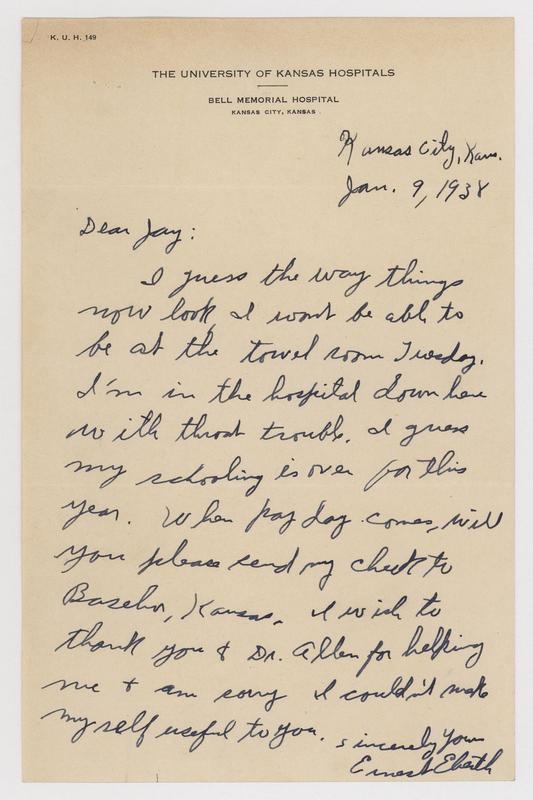 K. U. H. 149
THE UNIVERSITY OF KANSAS HOSPITALS
BELL MEMORIAL HOSPITAL
KANSAS CITY, KANSAS
Kansas City, Kans.
Jan. 9, 1938
Dear Jay:
I guess the way things
now look, I wont be able to
be at the towel room Tuesday.
I'm in the hospital down here
with throat trouble. I guess
my schooling is over for this
year. When pay day comes, will
you please send my check to
Basehor, Kansas. I wish to
thank you & Dr. Allen for helping
me & am sorry I couldn't make
myself useful to you.
Sincerely Yours
Ernest